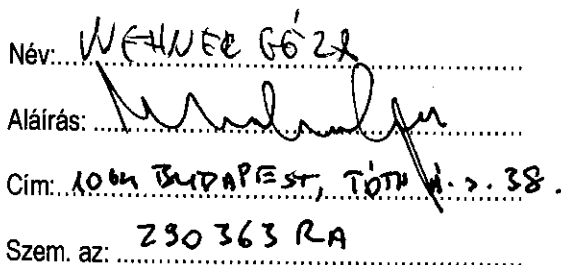 Név: WEHNER GÉZA
Aláírás:
Cím: 1064 BUDAPEST, TÓTH Á. S. 38.
Szem. az: 290363 RA